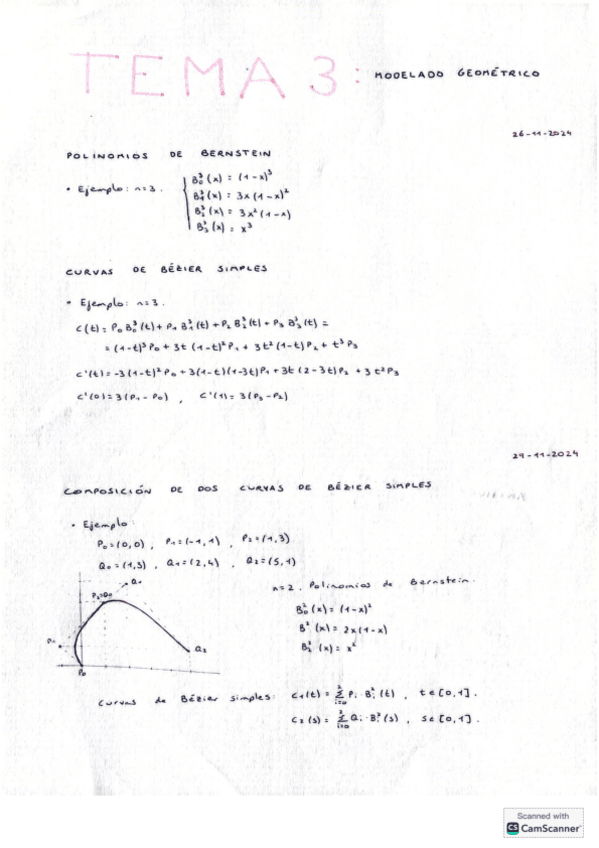 TEMA 3: MODELADO GEOMÉTRICO
26-11-2024
POLINOMIOS DE BERNSTEIN
• Ejemplo: n=3.
B₀³(x) = (1-x)³
B₁³(x) = 3x(1-x)²
B₂³(x) = 3x²(1-x)
B₃³(x) = x³
CURVAS DE BÉZIER SIMPLES
• Ejemplo: n=3.
C(t) = P₀B₀³(t) + P₁B₁³(t) + P₂B₂³(t) + P₃B₃³(t) =
= (1-t)³P₀ + 3t(1-t)²P₁ + 3t²(1-t)P₂ + t³P₃
C'(t) = -3(1-t)²P₀ + 3(1-t)(1-3t)P₁ + 3t(2-3t)P₂ + 3t²P₃
C'(0) = 3(P₁-P₀) , C'(1) = 3(P₃-P₂)
29-11-2024
COMPOSICIÓN DE DOS CURVAS DE BÉZIER SIMPLES
• Ejemplo
P₀=(0,0) , P₁=(-1,1) , P₂=(1,3)
Q₀=(1,3) , Q₁=(2,4) , Q₂=(5,1)
Q₁
P₂=Q₀
P₁
Q₂
P₀
n=2. Polinomios de Bernstein.
B₀²(x) = (1-x)²
B²(x) = 2x(1-x)
B₂²(x) = x²
Curvas de Bézier simples: C₁(t) = Σ_{i=0}^{2} Pᵢ·Bᵢ²(t) , t∈[0,1].
C₂(s) = Σ_{i=0}^{2} Qᵢ·Bᵢ²(s) , s∈[0,1].
Scanned with
CS CamScanner